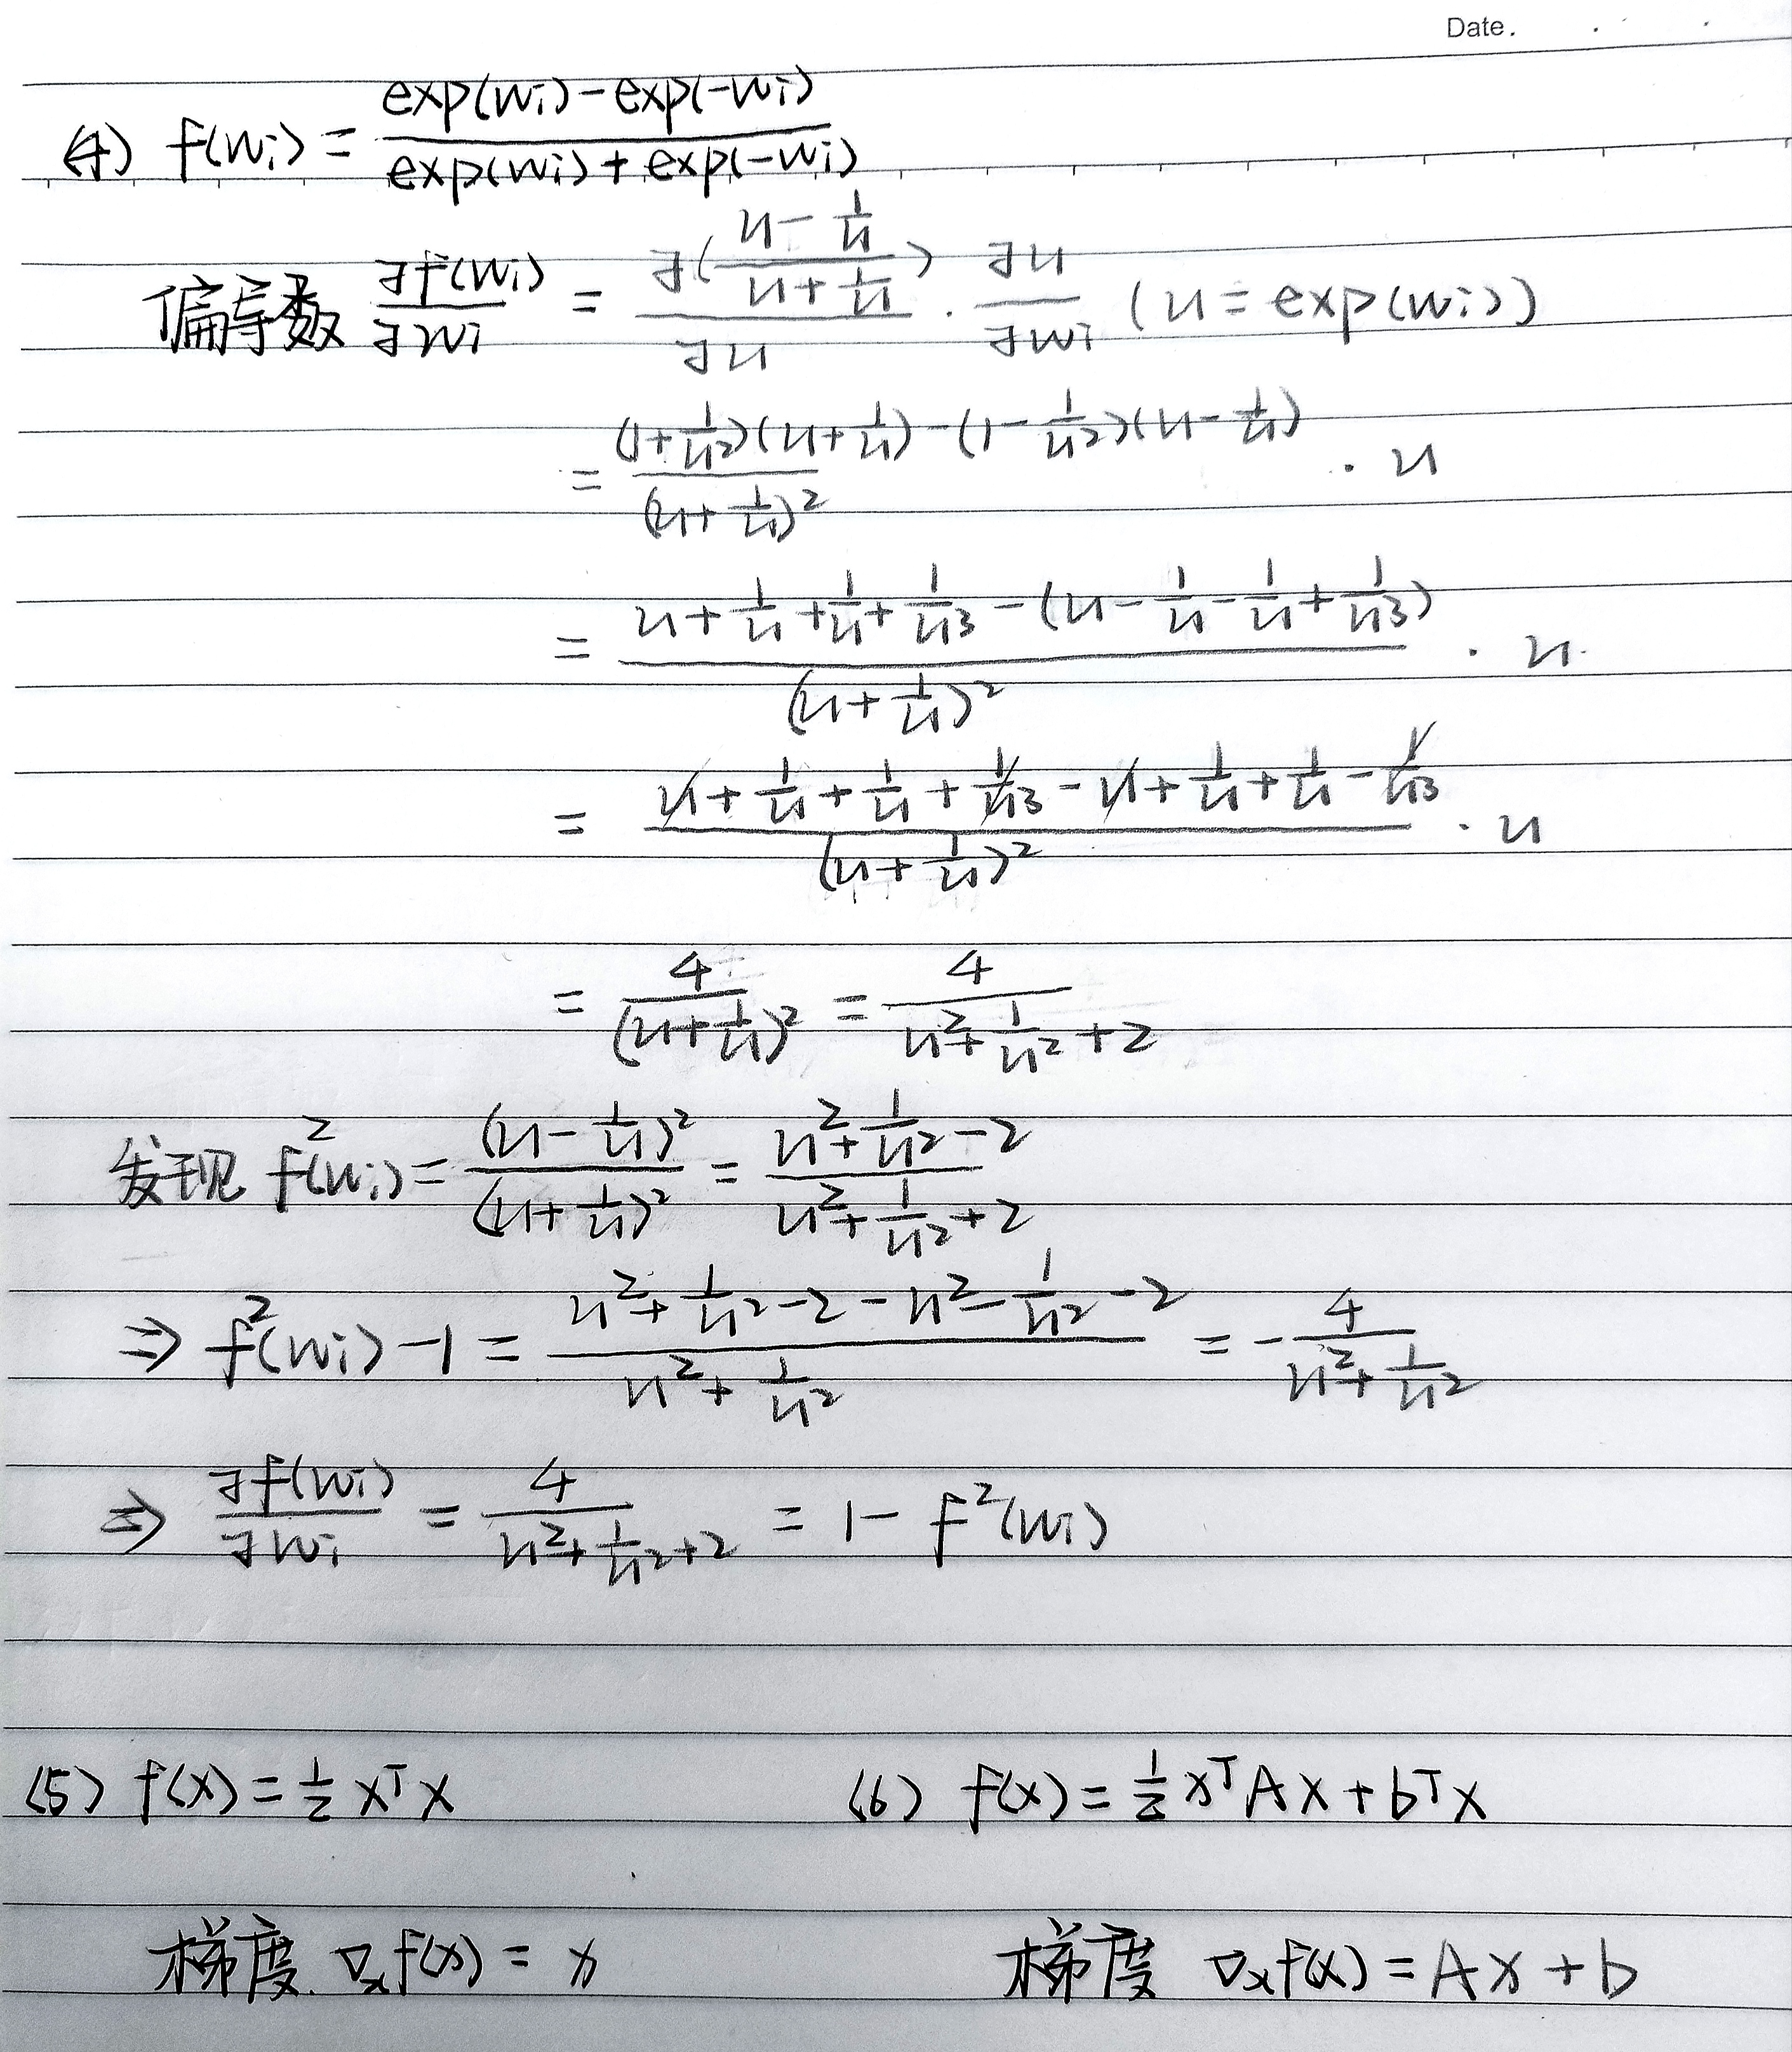 Date.
(4) f(wi) = (exp(wi) - exp(-wi)) / (exp(wi) + exp(-wi))
偏导数 ∂f(wi)/∂wi = ∂((u - 1/u)/(u + 1/u))/∂u · ∂u/∂wi (u = exp(wi))
= ((1 + 1/u²)(u + 1/u) - (1 - 1/u²)(u - 1/u)) / (u + 1/u)² · u
= (u + 1/u + 1/u + 1/u³ - (u - 1/u - 1/u + 1/u³)) / (u + 1/u)² · u
= (u + 1/u + 1/u + 1/u³ - u + 1/u + 1/u - 1/u³) / (u + 1/u)² · u
= 4/(u + 1/u)² = 4/(u² + 1/u² + 2)
发现 f²(wi) = (u - 1/u)²/(u + 1/u)² = (u² + 1/u² - 2)/(u² + 1/u² + 2)
⇒ f²(wi) - 1 = (u² + 1/u² - 2 - u² - 1/u² - 2)/(u² + 1/u²) = - 4/(u² + 1/u²)
⇒ ∂f(wi)/∂wi = 4/(u² + 1/u² + 2) = 1 - f²(wi)
(5) f(x) = 1/2 xᵀx
(6) f(x) = 1/2 xᵀAx + bᵀx
梯度. ∇ₓf(x) = x
梯度 ∇ₓf(x) = Ax + b